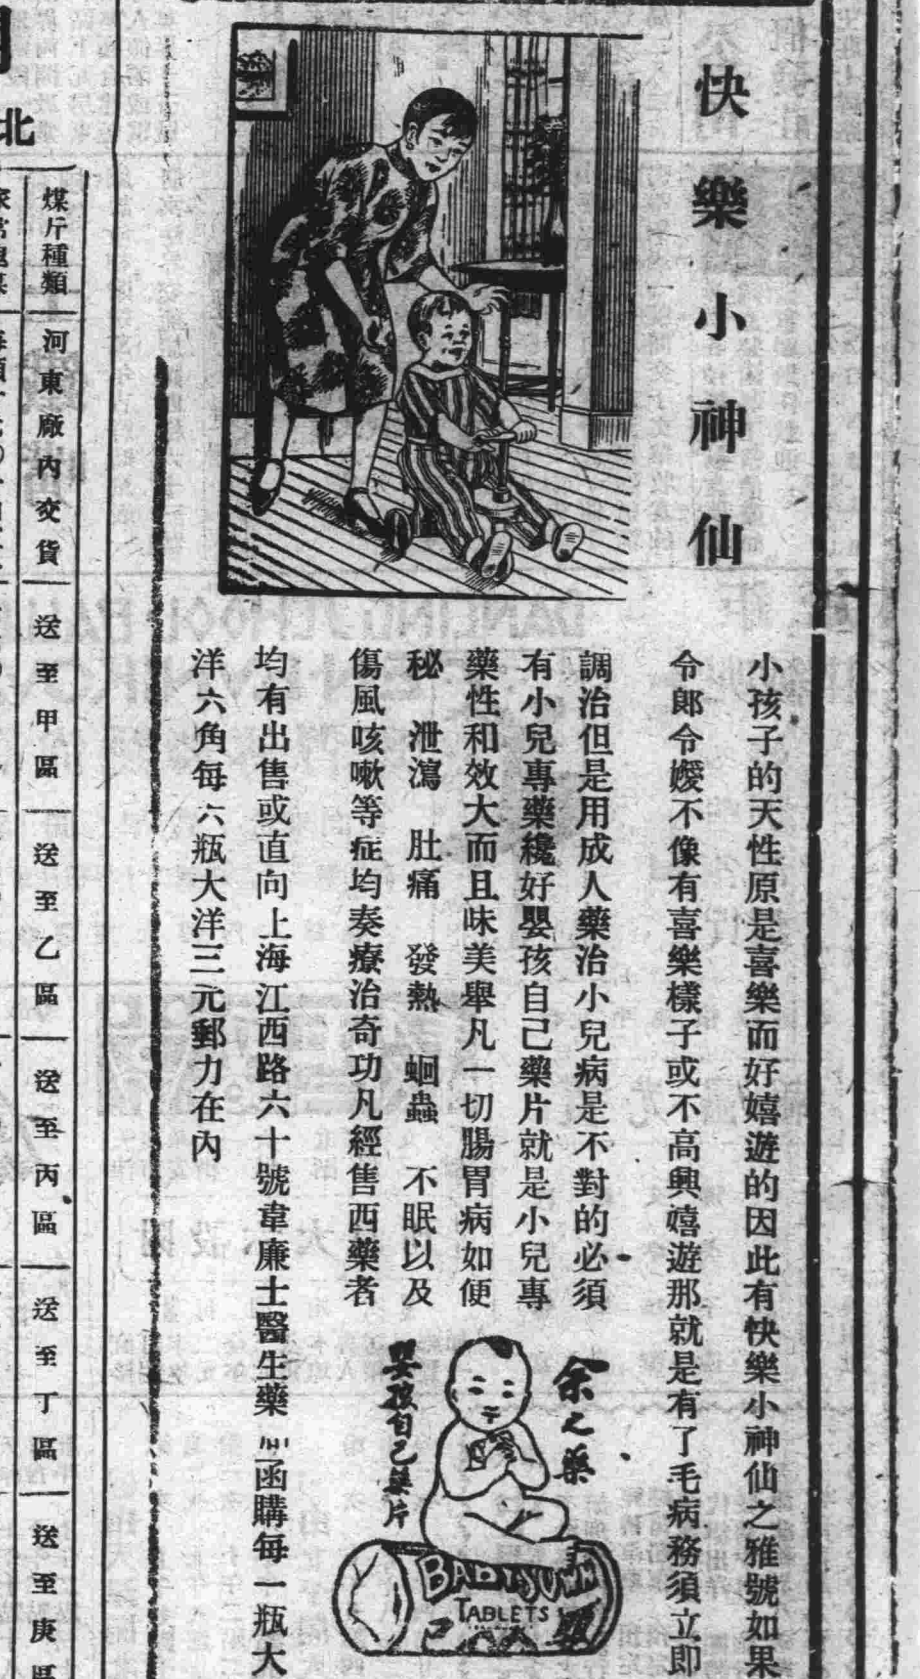 快樂小神仙
小孩子的天性原是喜樂而好嬉遊的因此有快樂小神仙之雅號如果
令郎令嬡不像有喜樂樣子或不高興嬉遊那就是有了毛病務須立即
調治但是用成人藥治小兒病是不對的必須
有小兒專藥纔好嬰孩自己藥片就是小兒專
藥性和效大而且味美舉凡一切腸胃病如便
秘 泄瀉 肚痛 發熱 蛔蟲 不眠以及
傷風咳嗽等症均奏療治奇功凡經售西藥者
均有出售或直向上海江西路六十號韋廉士醫生藥 函購每一瓶大
洋六角每六瓶大洋三元郵力在內
余之藥
嬰孩自己藥片
TABLETS
北
煤斤種類
河東廠內交貨
送至甲區
送至乙區
送至丙區
送至丁區
送至庚區